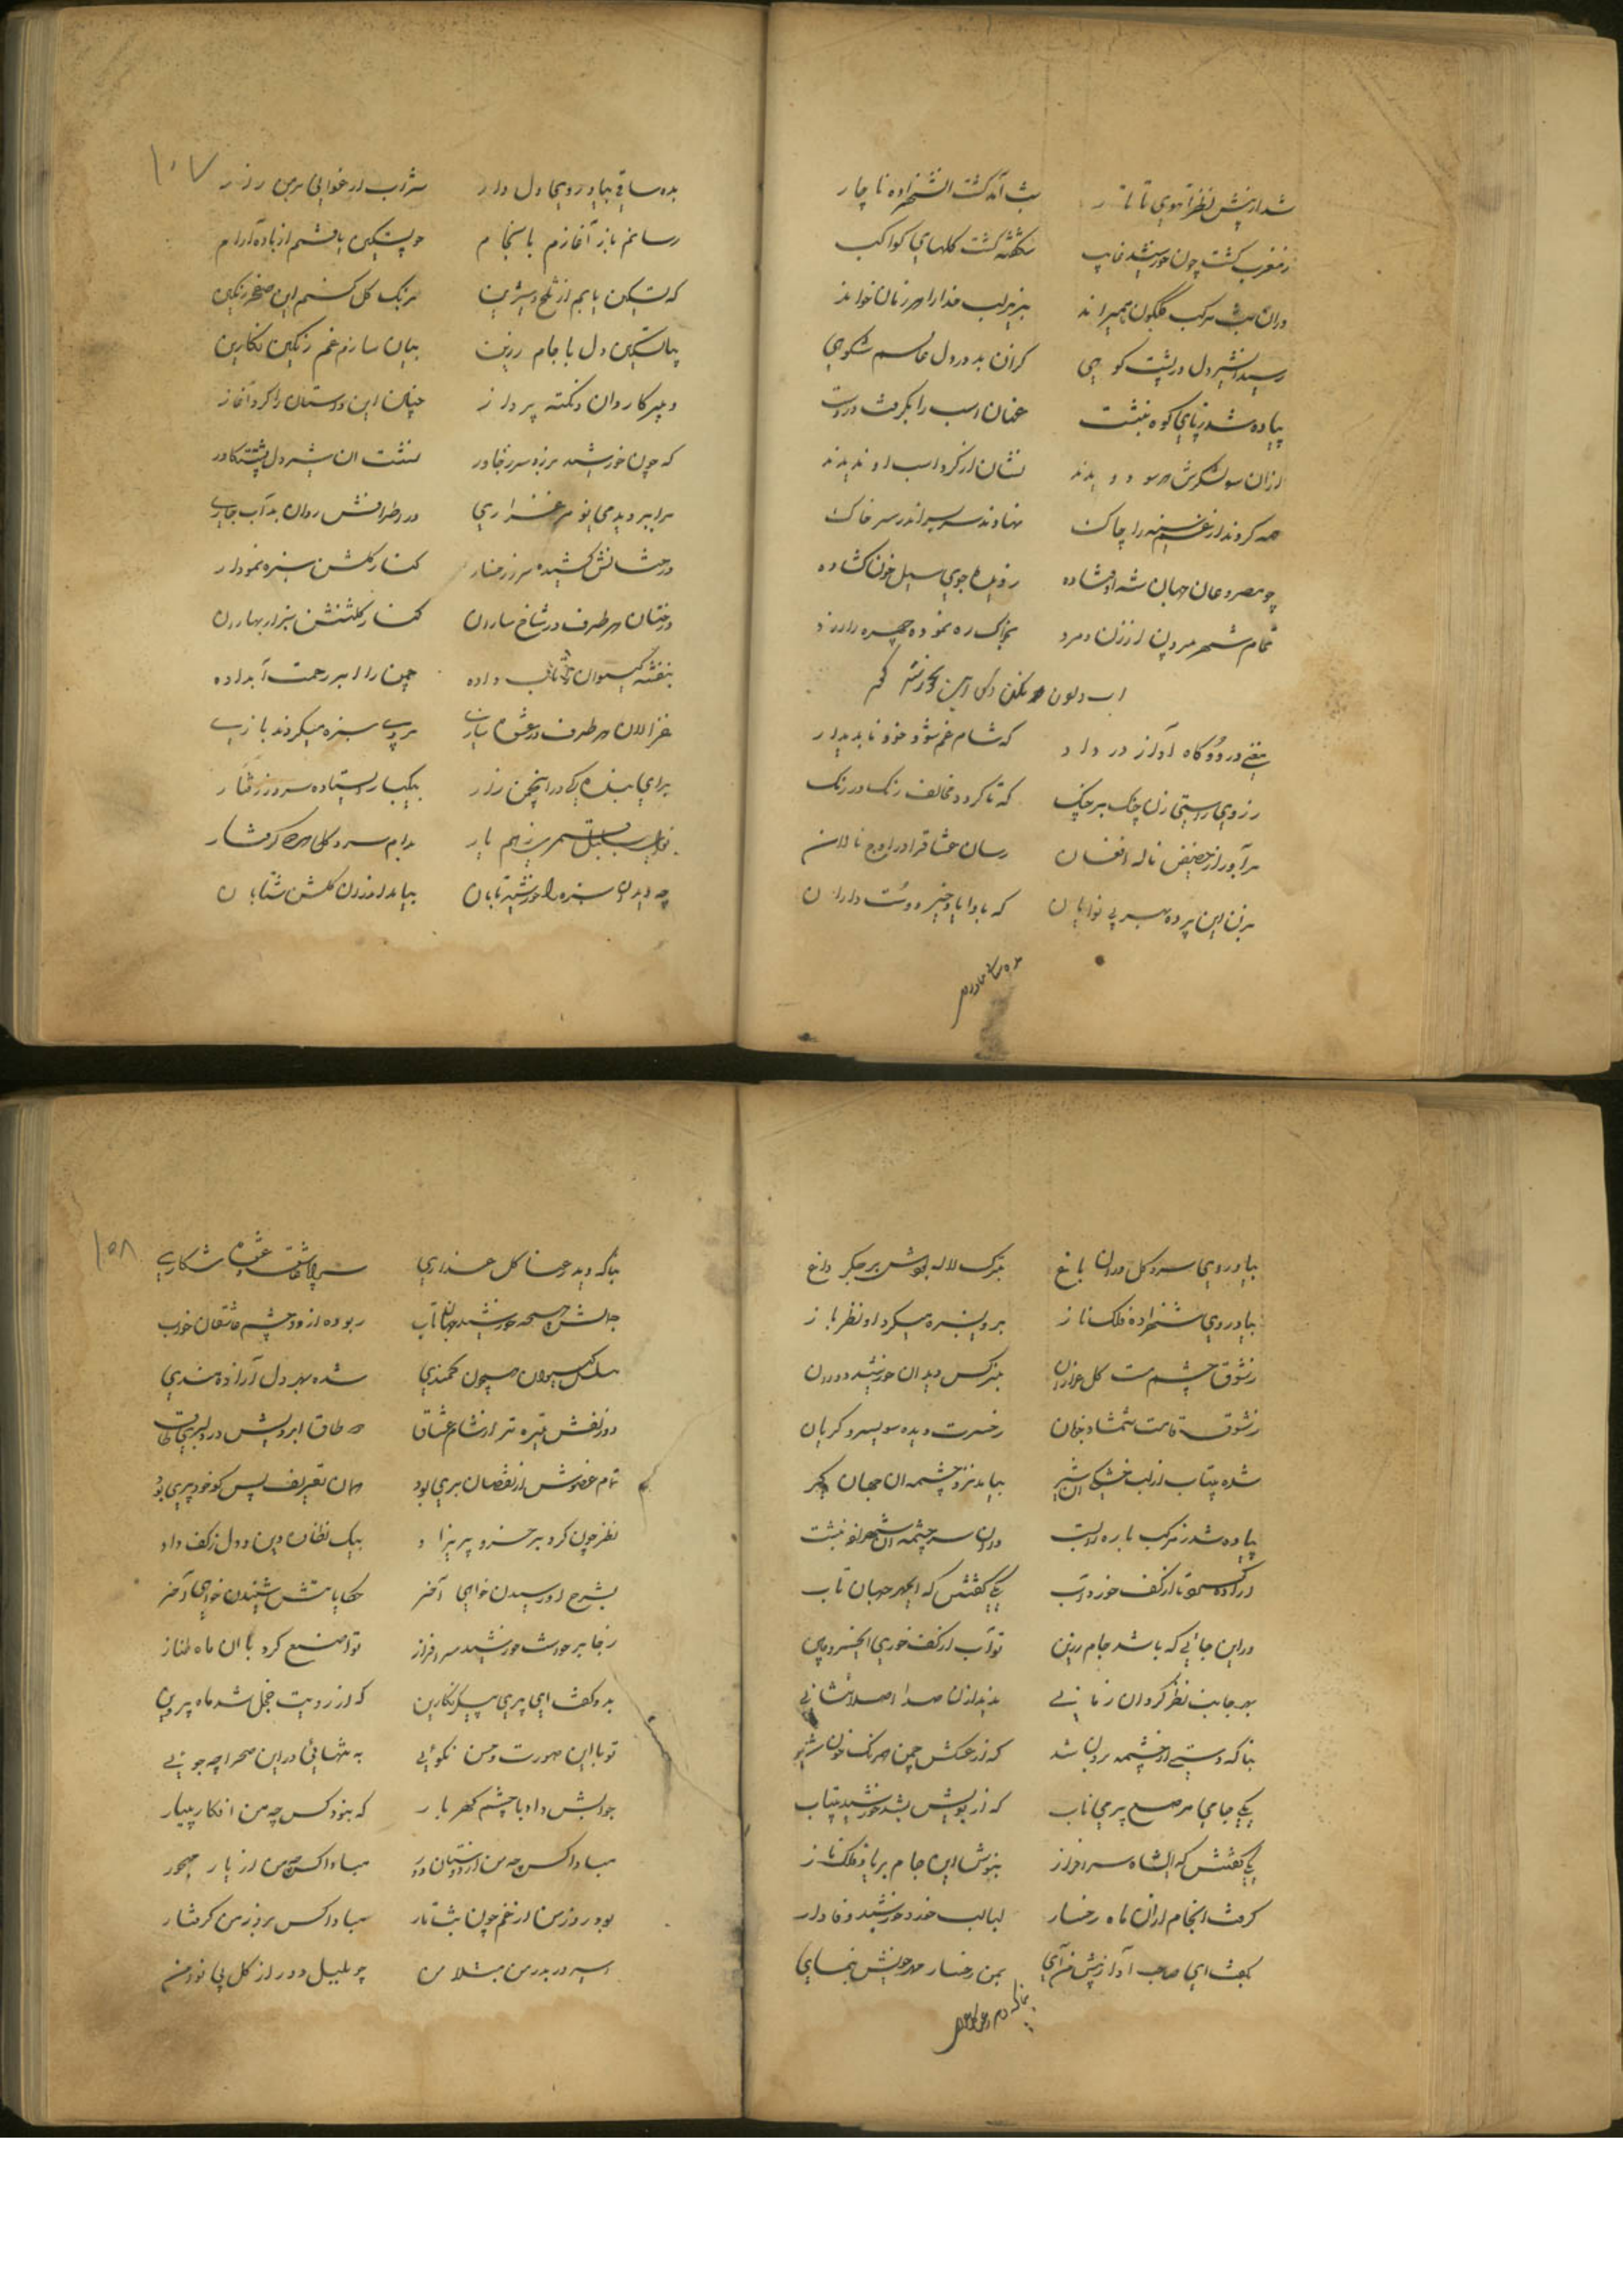 شد از پیش نظر آهوی تاتار بشب آمد گشت آن شهزاده ناچار
ز مغرب گشت چون خورشید غایب شکفته گشت گلهای کواکب
در آن شب مرکب گلگون همیراند بزیر لب خدا را هر زمان خواند
رسید آن شیر دل در پشت کوهی کز آن بد در دل عالم شکوهی
پیاده شد ز پای کوه بنشست عنان اسب را بگرفت در دست
از آن سو لشکرش هر سو دویدند نشان از گرد اسب او ندیدند
همه کردند از غم سینه را چاک نهادند سر بسر اندر سر خاک
چو مصروعان جهان شه اوفتاده ز دیده جوی سیل خون گشاده
تمام شهر مردین از زن و مرد بخاک ره نموده چهره را زرد
که شام غم شود خود ناپدیدار
ز روی راستی زن چنگ بر چنگ که تا گردد مخالف رنگ در رنگ
برآور از حضیض ناله افغان رسان عشاق را در اوج نالان
بزن این پرده بهر بی نوایان
۱۰۷
بده ساقی بیاد روی دلدار شراب ارغوانی
رسانم باز آغازم بانجام چو تسکین یافتم از باده آرام
که تسکین یابم از تلخ و شیرین برنگ گل کنم این صفحه رنگین
بیا تسکین دل با جام زرین بیان سازم غم رنگین نگارین
دبیر کاروان و نکته پرداز چنان این داستان را کرد آغاز
که چون خورشید برزد سر ز خاور نشست آن شیر دل پشت تکاور
برابر دید می‌نو مرغزاری در اطرافش روان بد آب جاری
درختانش کشیده سر ز رخسار کنار گلشن سبزه نمودار
درختان هر طرف در شاخ ساران کنار گلشنش بزار بهاران
بنفشه گیسوان تاب داده چمن را ابر رحمت آب داده
غزالان هر طرف در عشق بازی بروی سبزه میکردند بازی
چه دید آن سبزه را خورشید تابان بیامد اندر آن گلشن شتابان
بیاد روی سرو گل در آن باغ برنگ لاله بودش بر جگر داغ
بیاد روی شهزاده فلک ناز بروی سبزه میکرد او نظر باز
ز شوق چشم مست گل عذاران بنرگس دید آن خورشید دوران
ز شوق قامت شمشاد خوبان ز حسرت دیده سوی سرو گریان
شده بیتاب از لب خشکی آن شیر بیامد نزد چشمه آن جهان گیر
پیاده شد ز مرکب باره را بست در آن سر چشمه آن شهزاده بنشست
یکی گفتش که ای مهر جهان تاب
در این جائی که باشد جام زرین تو آب از کف خوری ای خسرو چین
بهر جانب نظر کرد آن زمانی ندید از آن صدا اصلا نشانی
بناگه دستی از چشمه برون شد که از عکسش چمن همرنگ خون شد
یکی جامی مرصع پر می ناب که از بویش بشد خورشید بیتاب
یکی گفتش که ای شاه سرافراز بنوش این جام بر یاد فلک ناز
گرفت آن جام از آن ماه رخسار لبالب خورد خورشید وفادار
بگفت ای صاحب آواز پیش من آی بمن رخسار مه خویش بنمای
۱۰۸
بناگه دید رعنا گل عذاری
جمالش چو خورشید جهانتاب ربوده از دو چشم عاشقان خواب
مسلسل گیسوان همچون کمندی شده بهر دل آزاده بندی
دو زلفش تیره تر از شام عشاق دو طاق ابرویش در دلبری طاق
تمام عضوش از نقصان بری بود همان تعریف بس کو خود پری بود
نظر چون کرد بر خسرو پریزاد بیک نظاره دین و دل ز کف داد
بشرح او رسیدن خواهی آخر حکایاتش شنیدن خواهی آخر
ز جا برجست خورشید سرافراز تواضع کرد با آن ماه طناز
بدو گفت ای پری پیکر نگارین که از رویت خجل شد ماه پروین
تو با این صورت و حسن نکوئی به تنهائی در این صحرا چه جوئی
جوابش داد با چشم گهربار که نبود کس چه من افکار بیمار
مبادا کس چه من از دوستان دور مبادا کس چه من از یار مهجور
بود روز من از غم چون شب تار مبادا کس بروز من گرفتار
اسیر درد من مبتلا من چو بلبل دور از گل بی نوا من